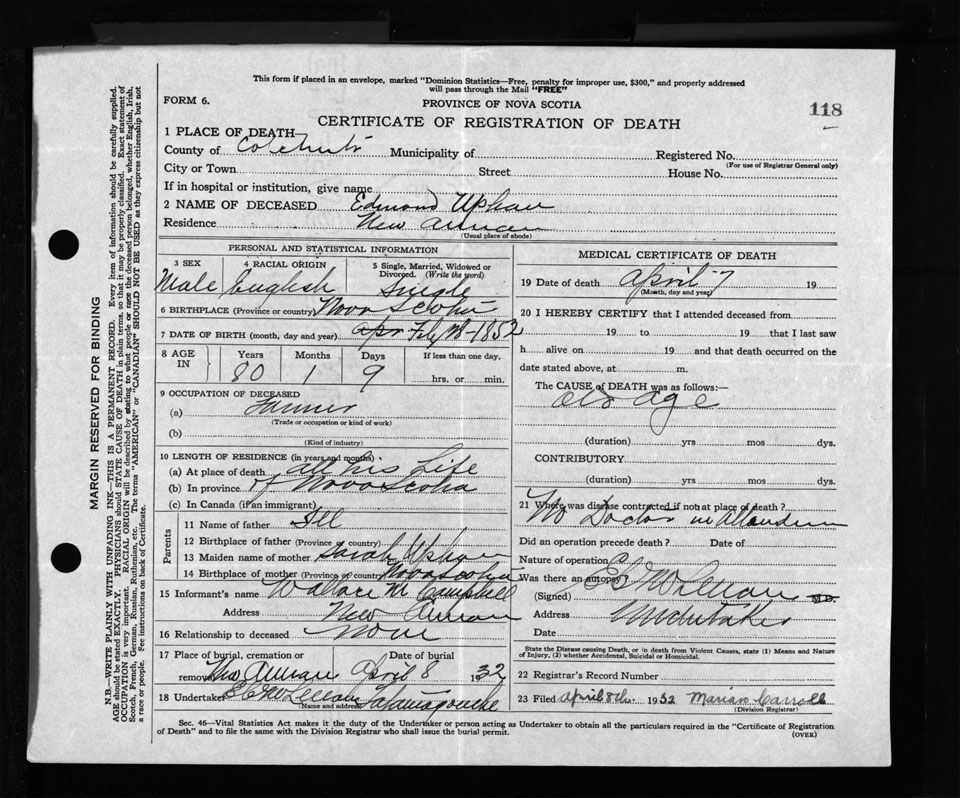 This form if placed in an envelope, marked "Dominion Statistics—Free, penalty for improper use, $300," and properly addressed
will pass through the Mail "FREE"
FORM 6.
PROVINCE OF NOVA SCOTIA
118
CERTIFICATE OF REGISTRATION OF DEATH
1 PLACE OF DEATH
County of Colchester Municipality of Registered No.
(For use of Registrar General only)
City or Town Street House No.
If in hospital or institution, give name
2 NAME OF DECEASED Edmond Upham
Residence New Annan
(Usual place of abode)
PERSONAL AND STATISTICAL INFORMATION
3 SEX 4 RACIAL ORIGIN 5 Single, Married, Widowed or Divorced. (Write the word)
Male English Single
6 BIRTHPLACE (Province or country) Nova Scotia
7 DATE OF BIRTH (month, day and year) Feby 1852
8 AGE IN Years Months Days If less than one day,
80 1 9 hrs. or min.
9 OCCUPATION OF DECEASED
(a) Farmer
(Trade or occupation or kind of work)
(b)
(Kind of industry)
10 LENGTH OF RESIDENCE (in years and months)
(a) At place of death all his Life
(b) In province of Nova Scotia
(c) In Canada (if an immigrant)
Parents
11 Name of father Ill
12 Birthplace of father (Province or country)
13 Maiden name of mother Sarah Upham
14 Birthplace of mother (Province or country) Nova Scotia
15 Informant's name Wallace M Campbell
Address New Annan
16 Relationship to deceased None
17 Place of burial, cremation or removal Date of burial
Annan April 8 1932
18 Undertaker Tatamagouche
(Name and address)
MEDICAL CERTIFICATE OF DEATH
19 Date of death April 7 19
(Month, day and year)
20 I HEREBY CERTIFY that I attended deceased from
19 to 19 that I last saw
h alive on 19 and that death occurred on the
date stated above, at m.
The CAUSE OF DEATH was as follows:—
Old age
(duration) yrs mos dys.
CONTRIBUTORY
(duration) yrs mos dys.
21 Where was disease contracted if not at place of death?
No Doctor in
Did an operation precede death? Date of
Nature of operation
Was there an autopsy
(Signed) M.D.
Address Undertaker
Date
State the Disease causing Death, or in death from Violent Causes, state (1) Means and Nature of Injury, (2) whether Accidental, Suicidal or Homicidal.
22 Registrar's Record Number
23 Filed April 8th 1932 Marion Carroll
(Division Registrar)
Sec. 46—Vital Statistics Act makes it the duty of the Undertaker or person acting as Undertaker to obtain all the particulars required in the "Certificate of Registration
of Death" and to file the same with the Division Registrar who shall issue the burial permit.
(OVER)
MARGIN RESERVED FOR BINDING
N.B.—WRITE PLAINLY WITH UNFADING INK—THIS IS A PERMANENT RECORD. Every item of information should be carefully supplied.
AGE should be stated EXACTLY. PHYSICIANS should STATE CAUSE OF DEATH in plain terms, so that it may be properly classified. Exact statement of
OCCUPATION is very important. RACIAL ORIGIN will be described by stating to what people or race the deceased person belonged, whether English, Irish,
Scotch, French, German, Russian, Ruthenian, etc. The terms "AMERICAN" or "CANADIAN" SHOULD NOT BE USED as they express citizenship but not
a race or people. See instructions on back of Certificate.